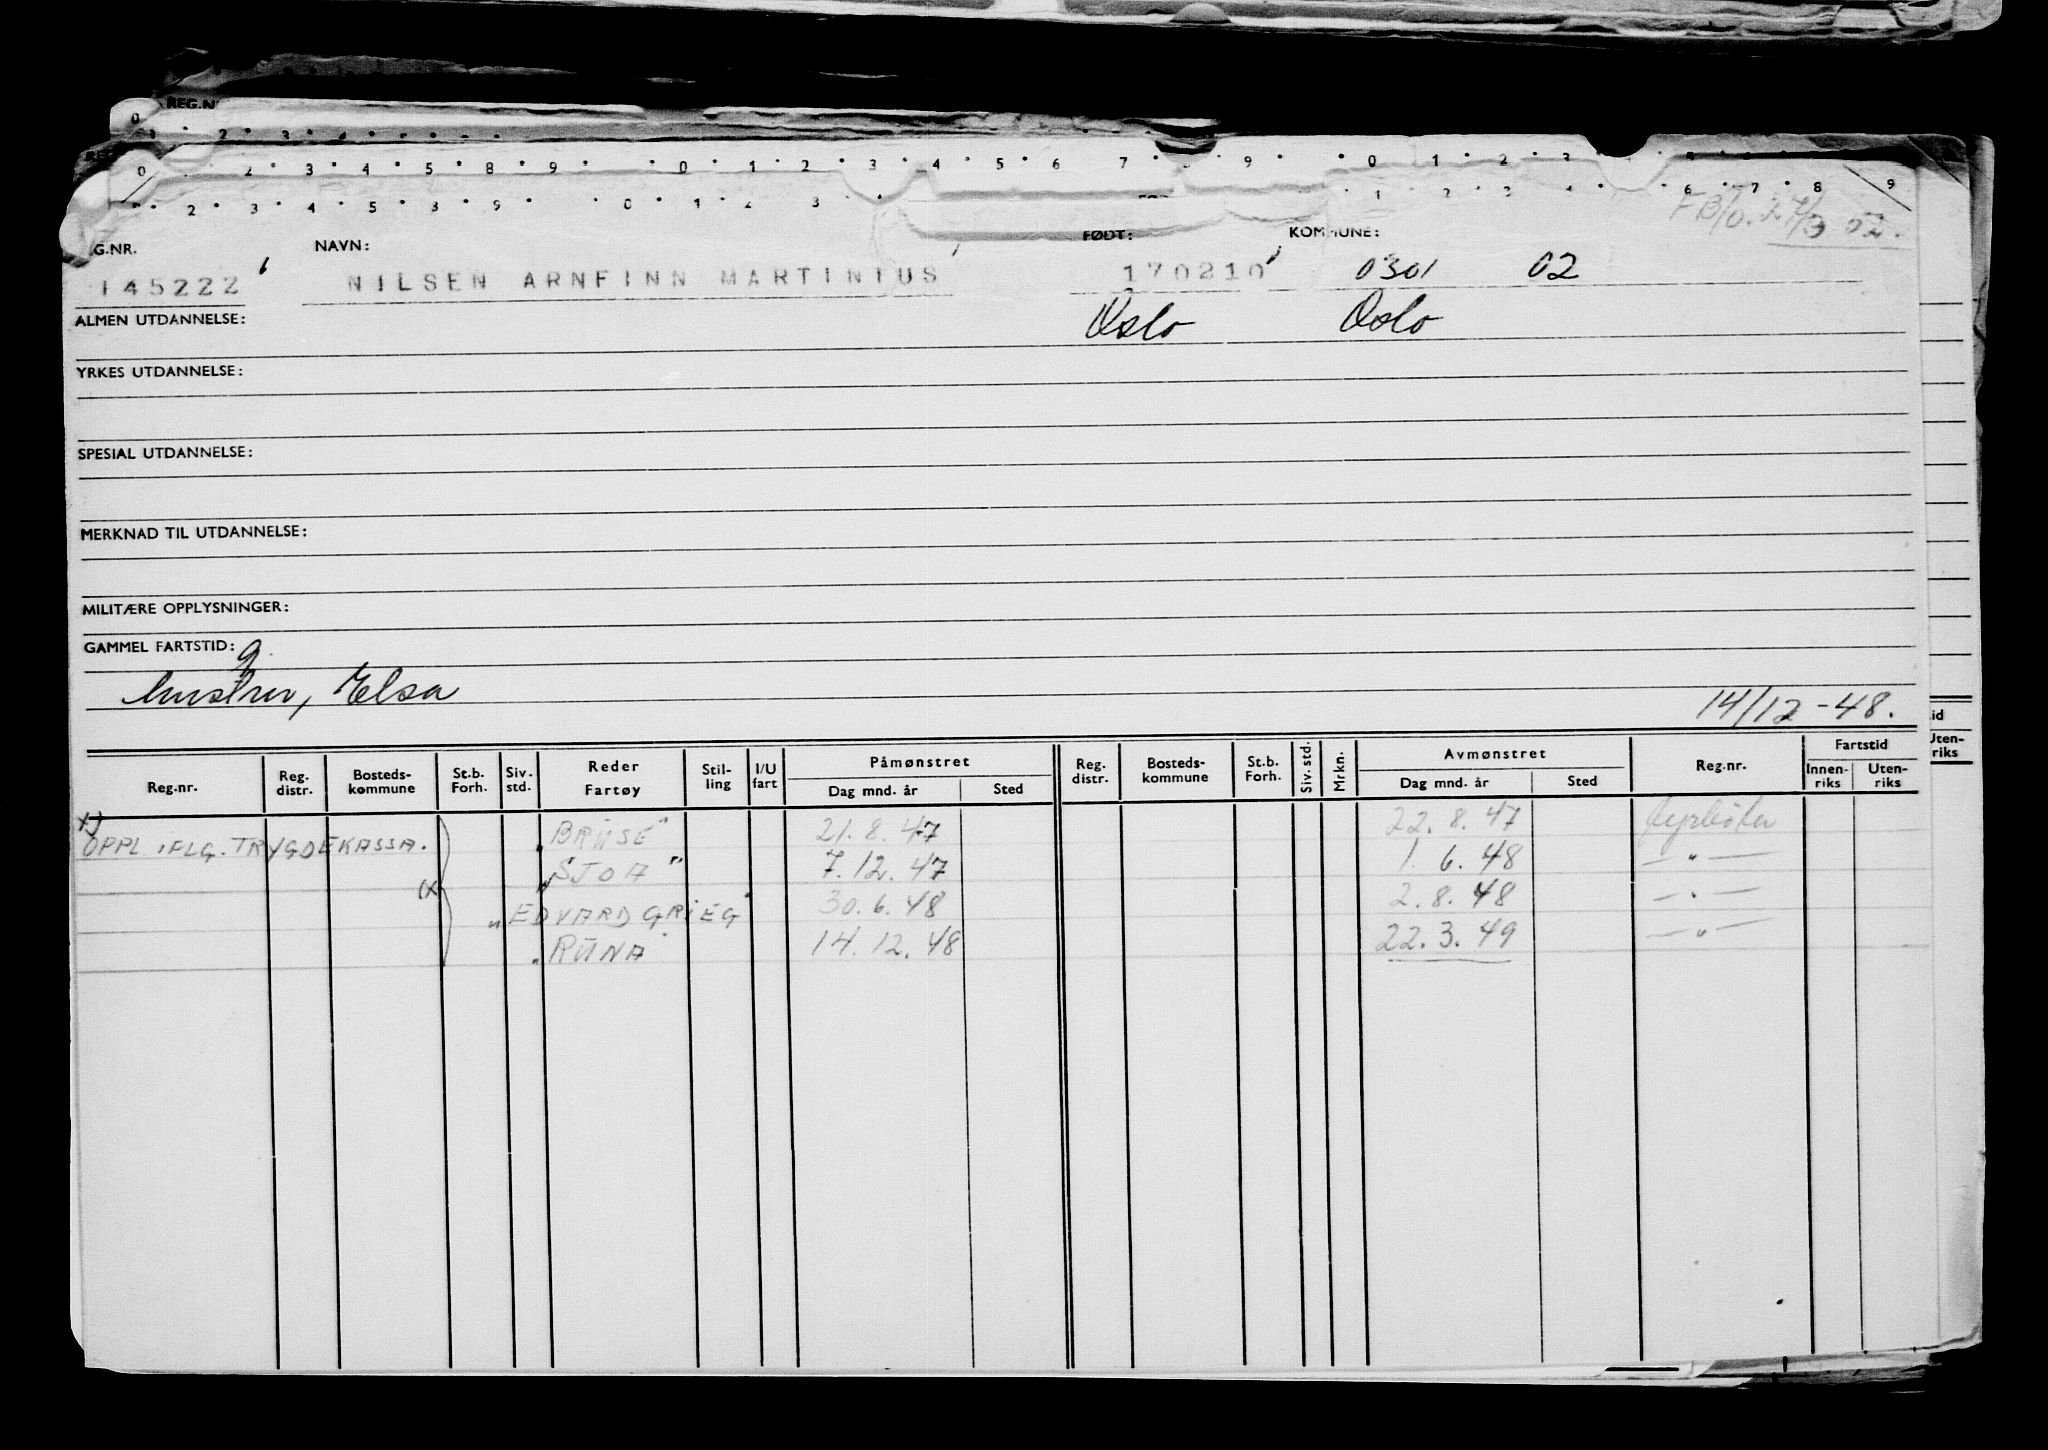 REG.N
0 2 3 4 5
0 2 3 4 5 8 9 0 1 2 3 4 5 6 7 9 0 1 2 3
2 3 4 5 3 9 0 1 2 3 1 2 6 7 8 9
G.NR. NAVN: FØDT: KOMMUNE:
145222 NILSEN ARNFINN MARTINIUS 170210 0301 02
ALMEN UTDANNELSE: Oslo Oslo
YRKES UTDANNELSE:
SPESIAL UTDANNELSE:
MERKNAD TIL UTDANNELSE:
MILITÆRE OPPLYSNINGER:
GAMMEL FARTSTID: g
hustru, Elsa 14/12-48.
Reg.nr. Reg. distr. Bosteds-kommune St.b. Forh. Siv. std. Reder Fartøy Stil-ling I/U fart Påmønstret Dag mnd. år Sted Reg. distr. Bosteds-kommune St.b. Forh. Siv. std. Mrkn. Avmønstret Dag mnd. år Sted Reg.nr. Fartstid Innen-riks Uten-riks
x) OPPL. IFLG. TRYGDEKASSA. "BRUSE" 21.8.47 22.8.47 Fyrbøter
"SJOA" 7.12.47 1.6.48 — " —
(x "EDVARD GRIEG" 30.6.48 2.8.48 — " —
"RUNA" 14.12.48 22.3.49 — " —
id
Uten-
riks